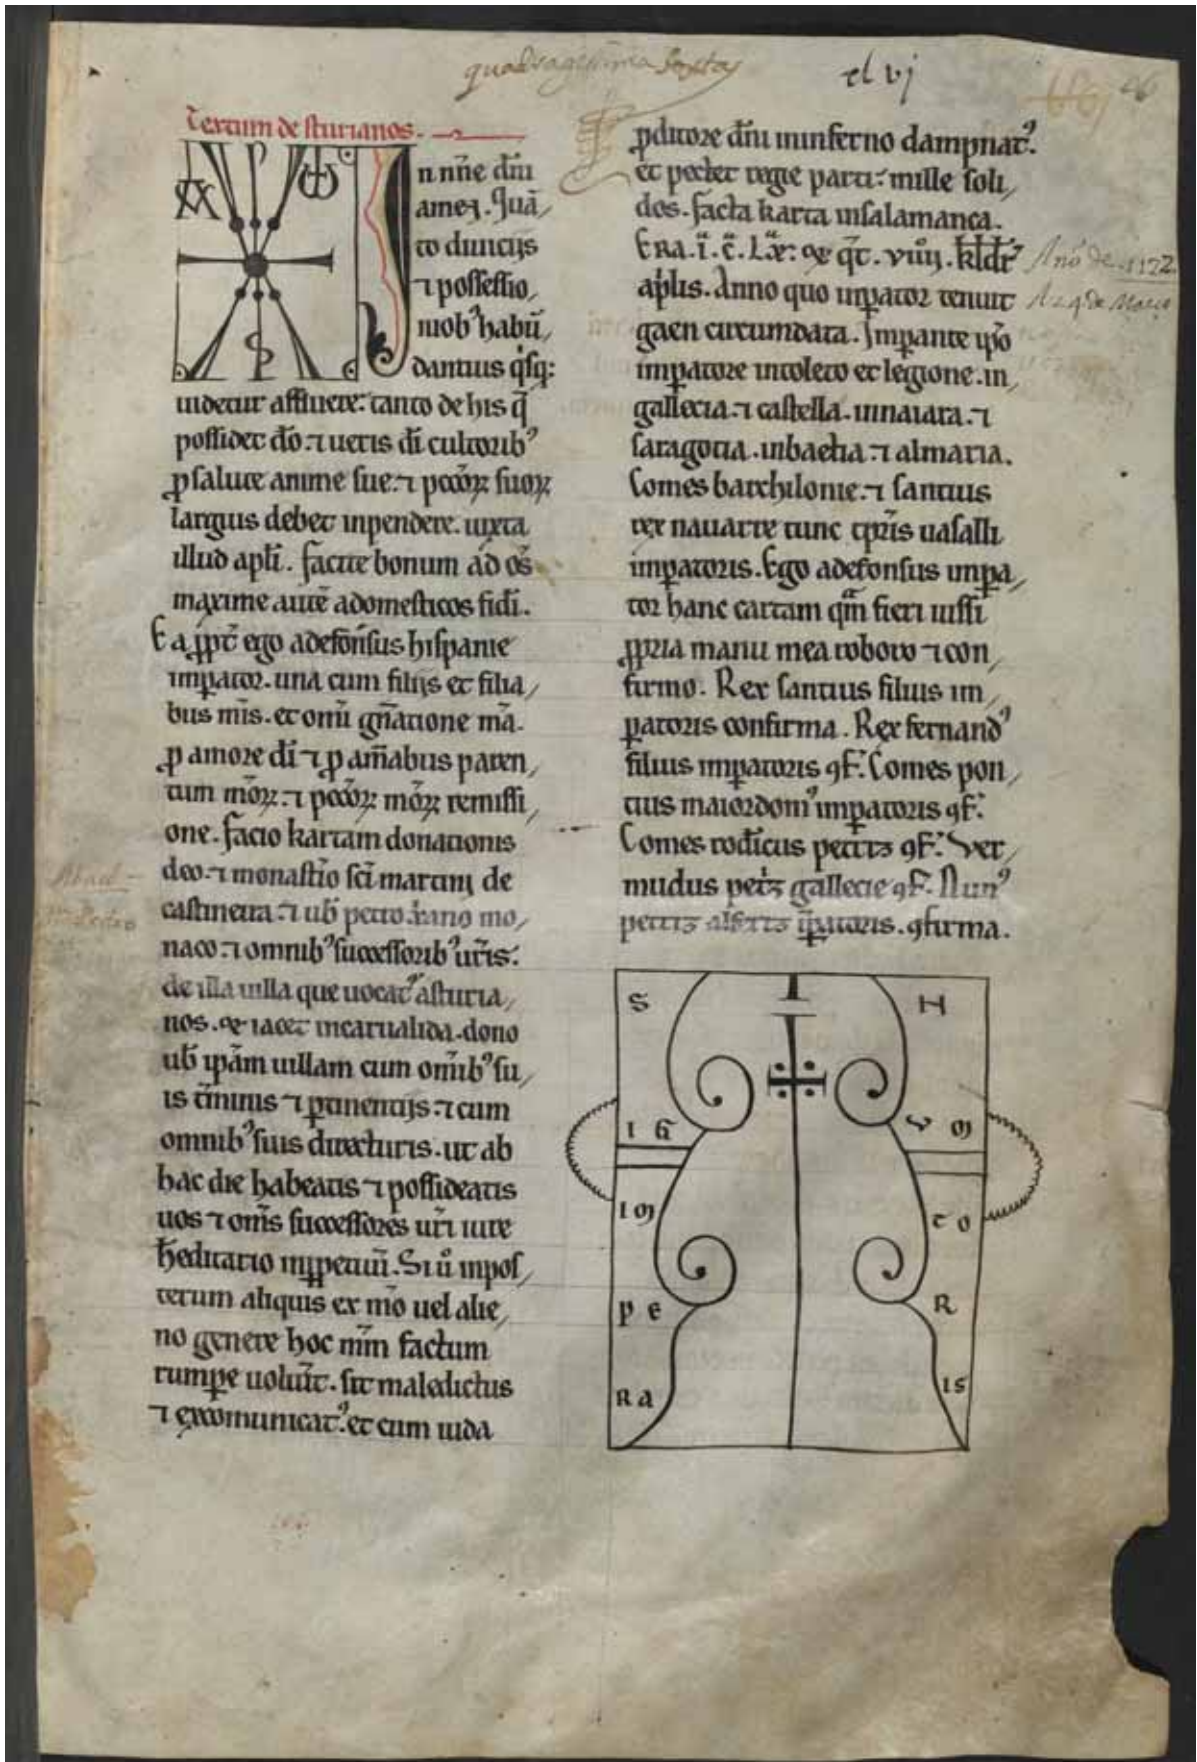 quadragessima sexta
el vj
46
Textum de sturianos.
In nñe dñi
ameɳ. Quā/
to diuicijs
⁊ possessio/
niobꝰ habū/
dantius qͥsq̢:
uidetur affluere: tanto de his q̄
possidet dõ: ⁊ ueris dī cultoribꝰ
ꝓ salute anime sue: ⁊ pccõꝝ suoꝝ
largius debet inpendere. iuxta
illud apłi. facite bonum ad oẽs
maxime autē adomesticos fidī.
Ea ꝓpt̄ ego adefonsus hispanie
imꝑator. una cum filijs et filia/
bus mīs. et omī gñatione mā.
ꝓ amore dī ⁊ ꝓ am̄abus paren/
tum mõꝝ: ⁊ pccõꝝ mõꝝ remissi/
one. facio kartam donationis
deo. ⁊ monast̄io scī martinj de
castineira ⁊ uƀ petro xᷓano mo/
naco: ⁊ omnibꝰ successoribꝰ ur̄is:
de illa uilla que uocatᷣ asturia/
nos. ⁊ iacet incarualida. dono
uƀ ip̄am uillam cum om̄ibꝰ su/
is t̄minis ⁊ ꝑtinentijs: ⁊ cum
omnibꝰ suis directuris. ut ab
hac die habeatis ⁊ possideatis
uos ⁊ om̄s successores ur̄i iure
h̄editario inꝑpetuū. Si ů inpos/
terum aliquis ex mõ uel alie/
no genere hoc mm̄ factum
rumꝑe uoluīt. sit maledictus
⁊ excomunicatꝰ. et cum iuda
ꝓditore dñi ininferno dampnatꝰ.
et pectet regie parti: mille soli/
dos. facta karta insalamanca.
Era. ī. c̄. Lxͣ: ⁊ q̄t. viiij. kłdr̃
apłis. Anno quo inꝑator tenuit
gaen circumdata. Imꝑante ip̄o
imꝑatore intoleto et legione. in/
gallecia. ⁊ castella. innaiara. ⁊
saragocia. inbaetia. ⁊ almaria.
Comes barchilonie: ⁊ santius
rex nauarre tunc tp̄ris uasalli
imꝑatoris. Ego adefonsus imꝑa/
tor hanc cartam qͣm fieri iussi
ꝓpria manu mea roboro ⁊ con/
firmo. Rex santius filius im/
ꝑatoris confirma. Rex fernandꝰ
filius imꝑatoris ꝯf: Comes pon/
tius maiordomꝰ imꝑatoris ꝯf:
Comes rod̃icus petriz ꝯf: Ver/
mudus petͥz gallecie ꝯf. Nunꝰ
petriz alferiz īꝑatoris. ꝯfirma.
Año de 1172.
A 24 de Março
Abad
Pedro
S H
I G
IM TO
P E R
RA IS